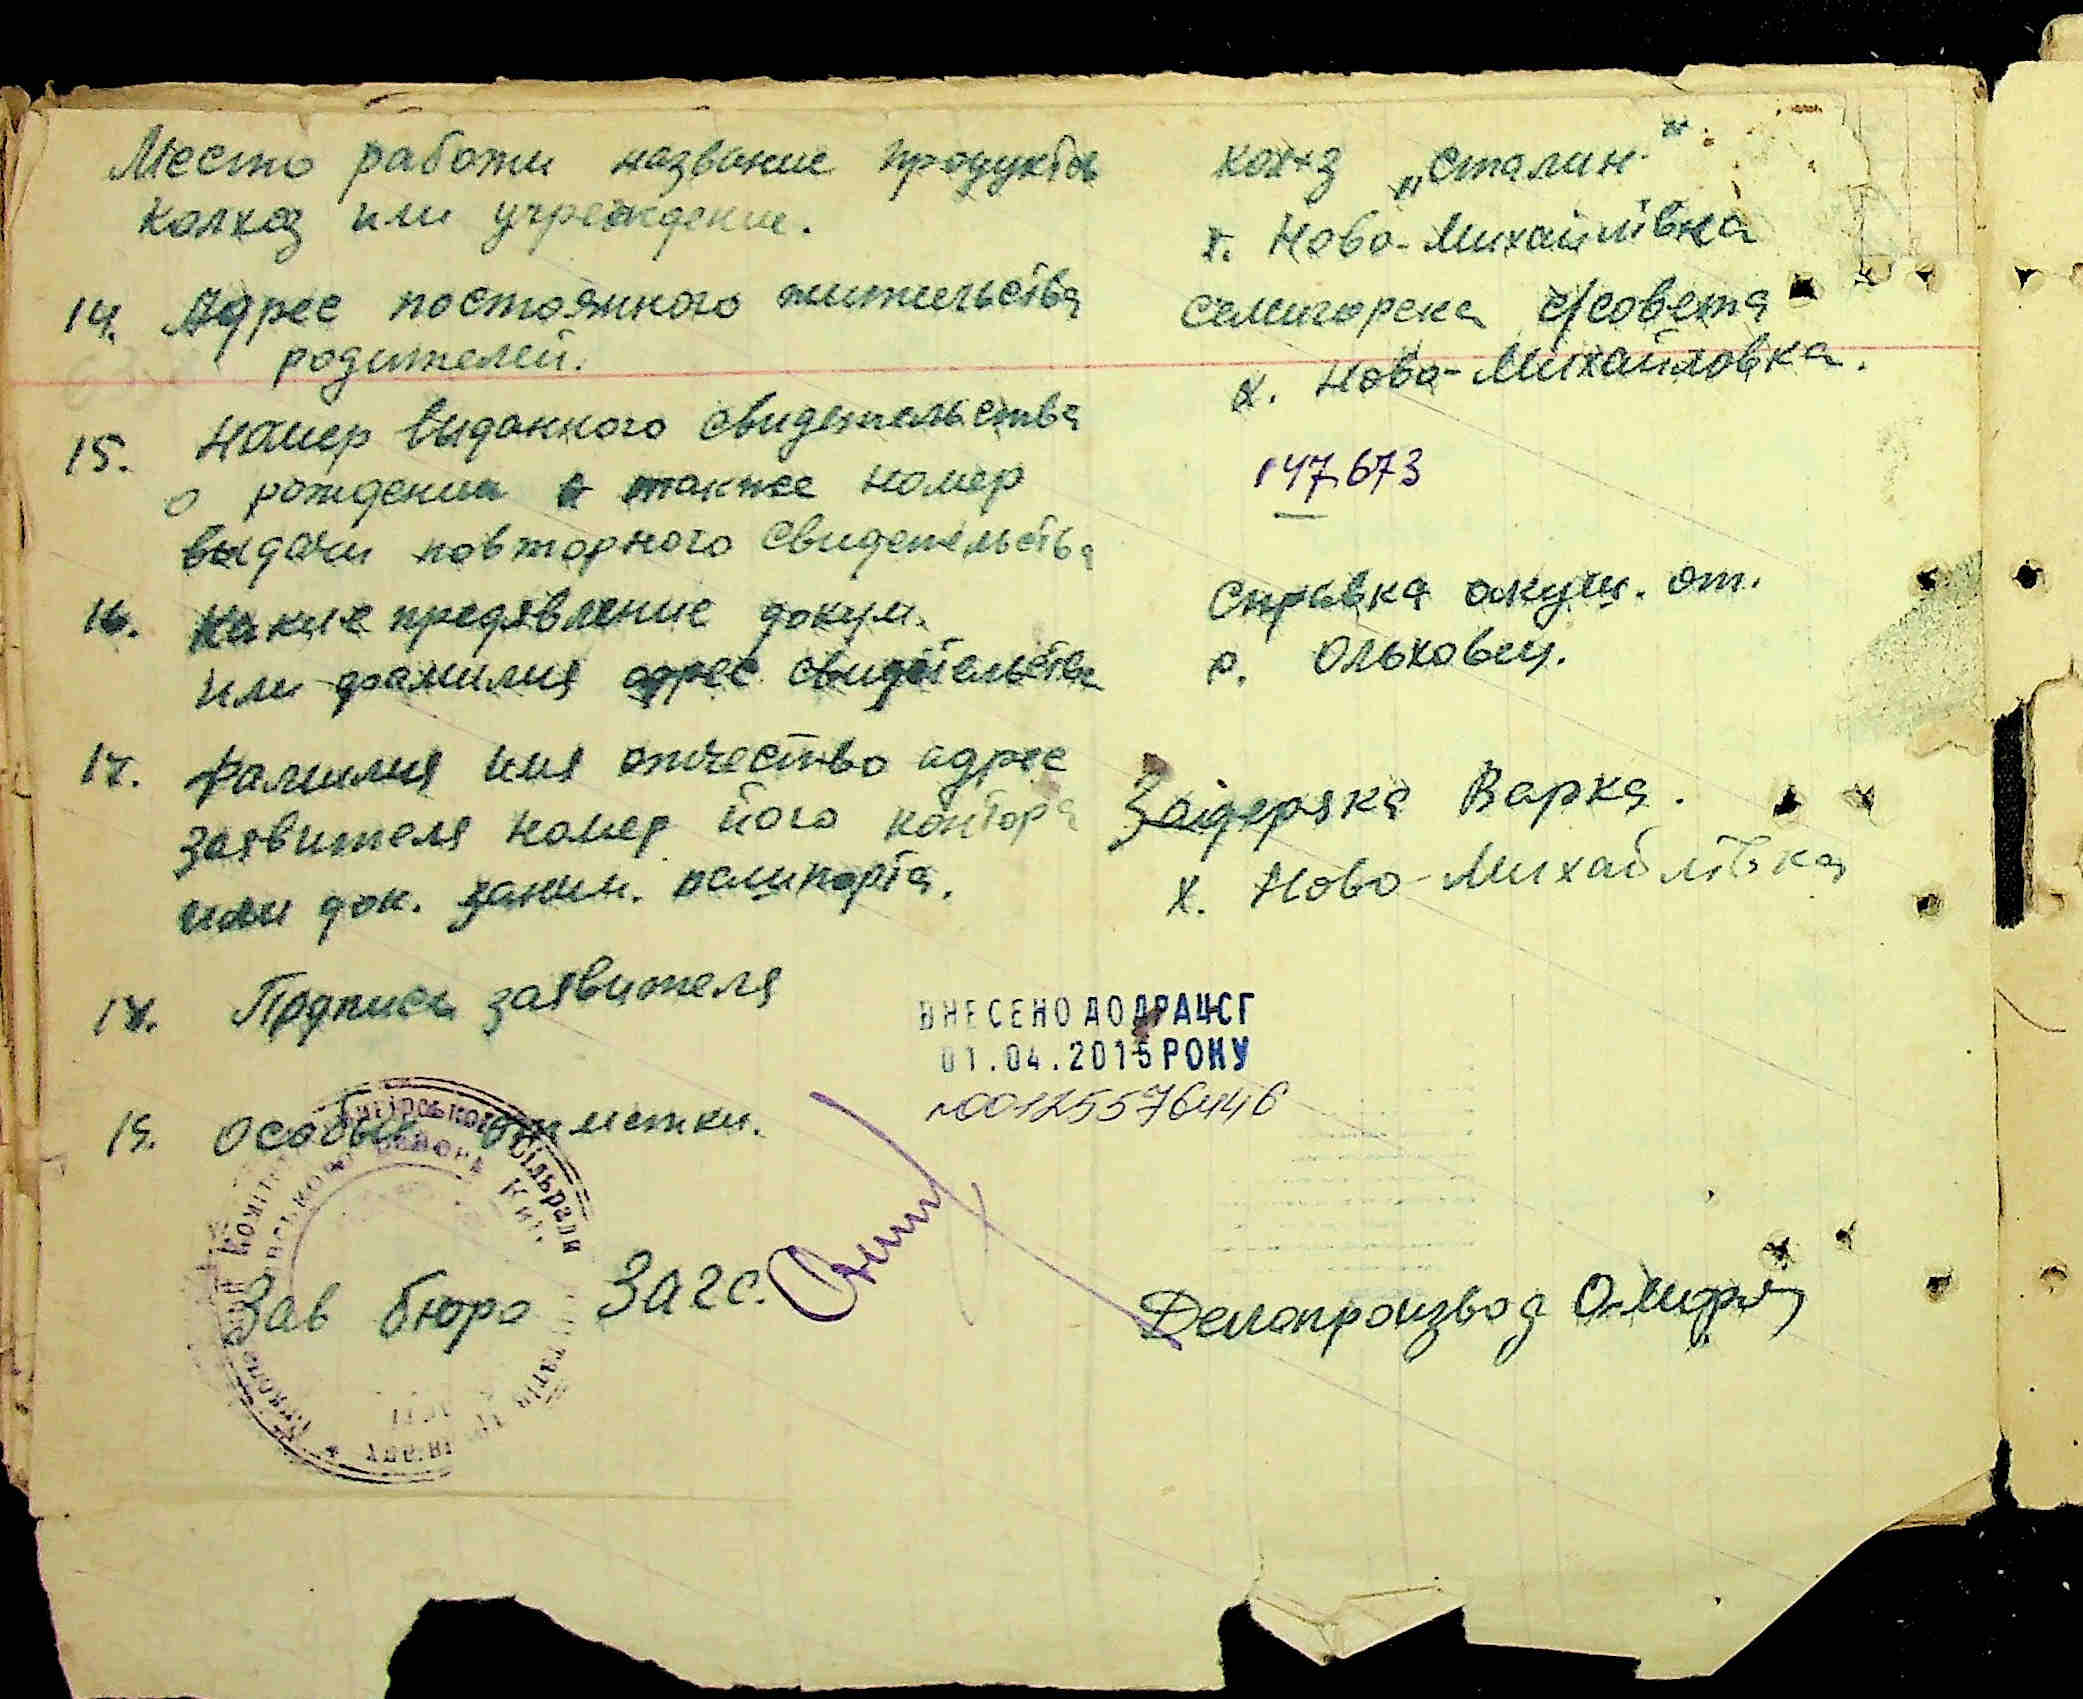 Место работи название продуктов
колхоз или учреждение.
колхз „Сталин"
х. Ново-Михайлівка
14. Адрес постоянного жительства
родителей.
с/совета
х. Ново-Михайловка.
15. Номер выданного свидетельства
о рождении а также номер
выдачи повторного свидетельства
147673
16. Какие предявление докум.
или фамилия адрес свидетельства
Справка акуш. от.
р. Ольховец.
17. Фамилия имя отчество адрес
заявителя номер його контора
или док. заним. паспорта.
Зaдеряка Варка.
х. Ново-Михайлівка
18. Подпись заявителя
ВНЕСЕНО ДО ДРАЦСГ
01.04.2015 РОКУ
№00125576446
19. Особые отметки.
Сільради
Зав бюро Загс.
Делопроизвод